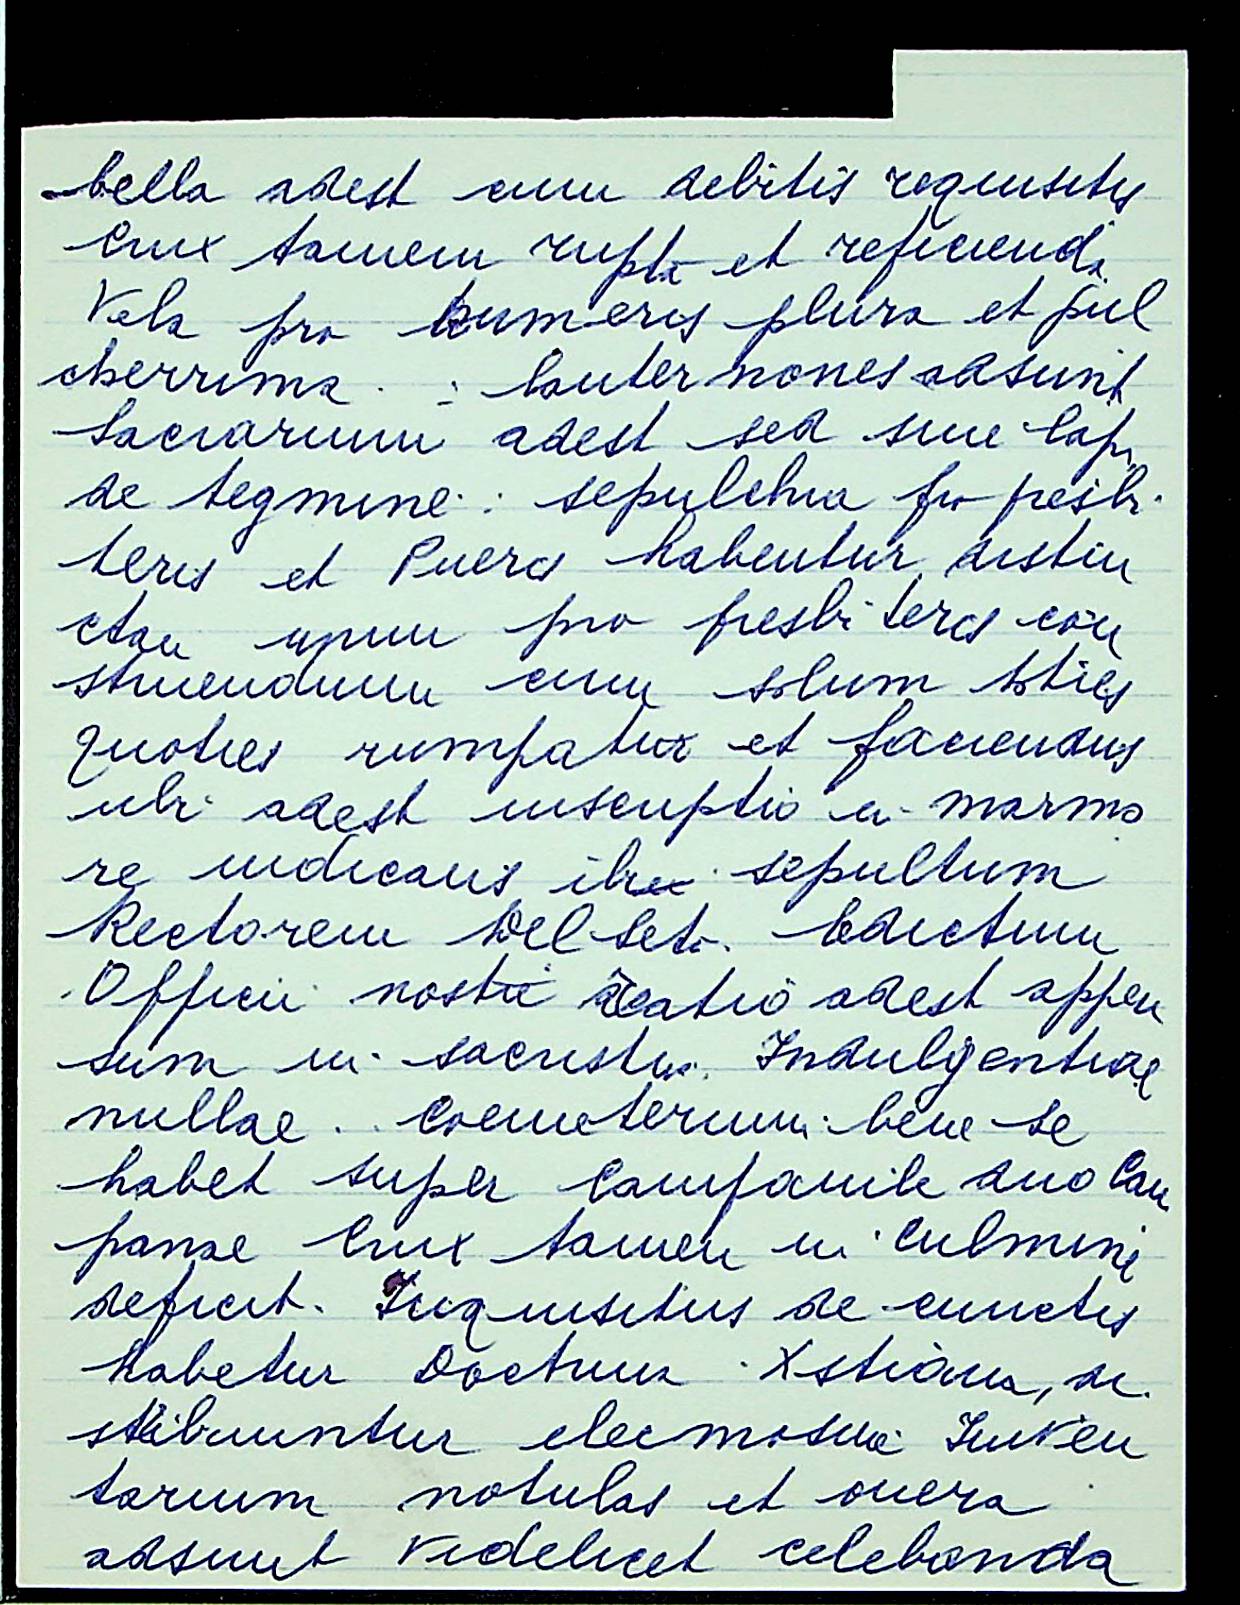 bella adest cum debitis requisitis
Crux tamem rupta et reficienda
Vela pro humeris plura et pul
cherrima . : lanternones adsunt
Sacrarium adest sed sine lapi
de tegmine . : sepulchra pro presbi
teris et Pueris habentur distin
cta unum pro presbiteris con
struendum cum solum toties
quoties rumpatur et faciendus
ubi adest inscriptio in marmo
re indicans ibi sepultum
Rectorem Del Seto. Edictum
Officii nostri adest appen
sum in sacristia. Indulgentiae
nullae . Coemeterium bene se
habet super Campanile duo Cam
panae Crux tamen in culmine
deficit. Inquisitus de cunctis
habetur Doctrina Xstiana, di
stribuuntur elecmosinae Inven
tarium notulas et onera
adsunt videlicet celebranda